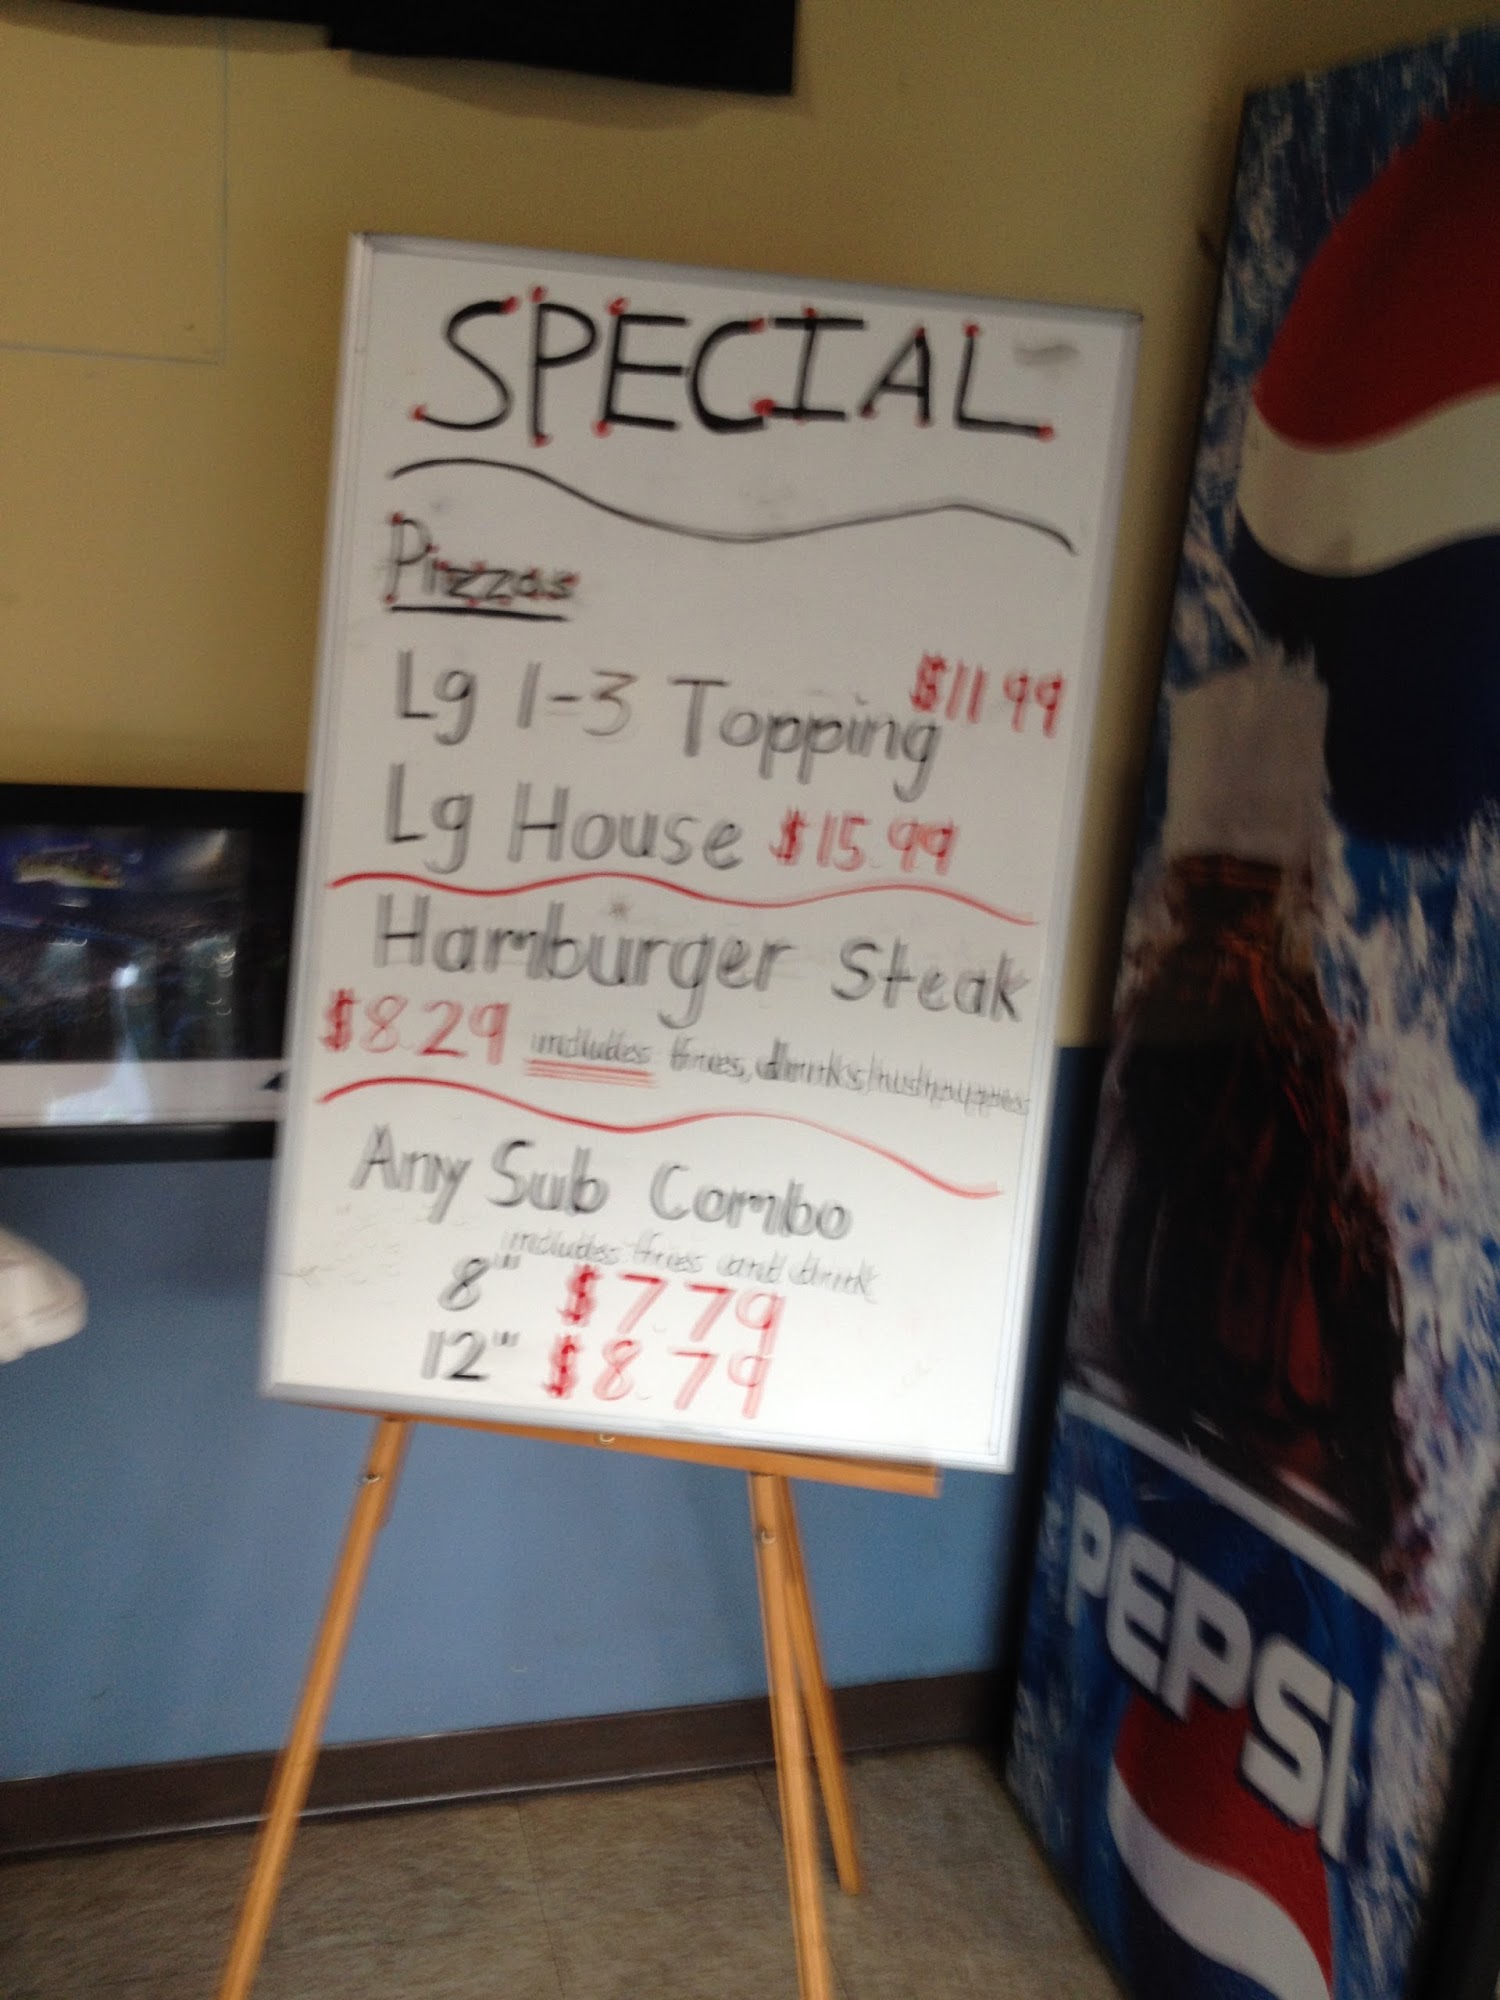 SPECIAL
Pizzas
Lg 1-3 Topping $11.99
Lg House $15.99
Hamburger Steak
$8.29 includes fries, drinks, hushpuppies
Any Sub Combo
includes fries and drink
8" $7.79
12" $8.79
PEPSI